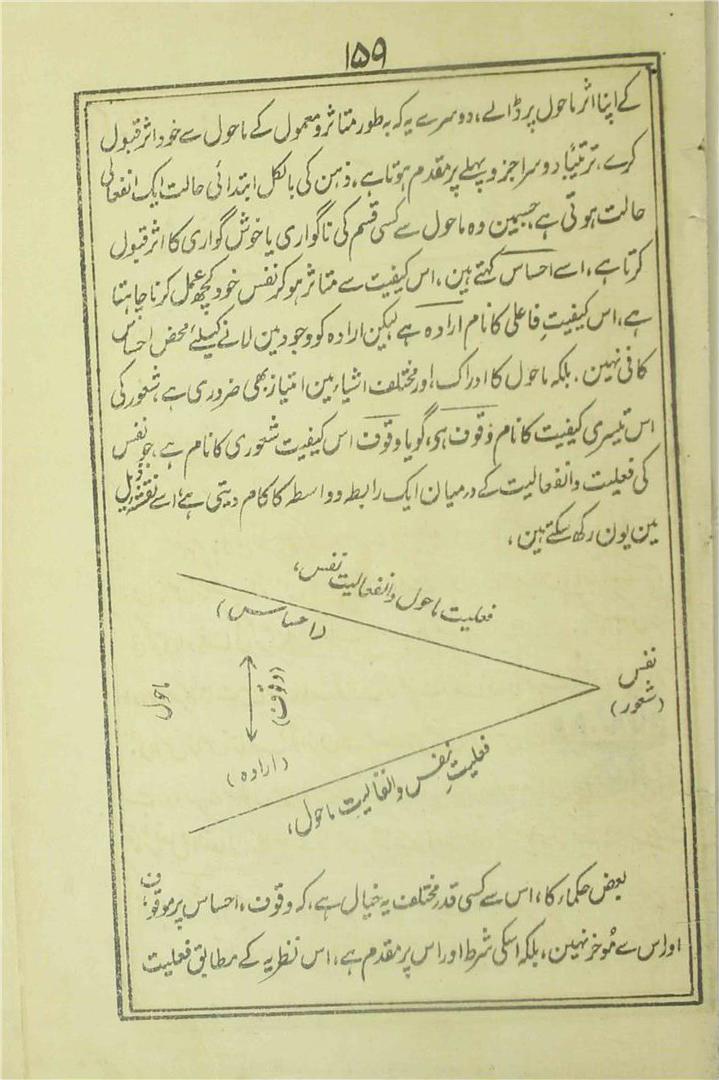 ۱۵۹
کے اپنا اثر ماحول پر ڈالے، دوسرے یہ کہ بہ طور متاثر و معمول کے ماحول سے خود اثر قبول
کرے، ترتیباً دوسرا جزو پہلے پر مقدم ہوتا ہے، ذہن کی بالکل ابتدائی حالت ایک انفعالی
حالت ہوتی ہے جسمین وہ ماحول سے کسی قسم کی ناگواری یا خوش گواری کا اثر قبول
کرتا ہے، اسے احساس کہتے ہین، اس کیفیت سے متاثر ہو کر نفس خود کچھ عمل کرنا چاہتا
ہے، اس کیفیتِ فاعلی کا نام ارادہ ہے لیکن ارادہ کو وجود مین لانے کیلئے محض احساس
کافی نہین، بلکہ ماحول کا ادراک اور مختلف اشیاء بین امتیاز بھی ضروری ہے، شعور کی
اس تیسری کیفیت کا نام وُقوف ہی، گویا وقوف اس کیفیت شعوری کا نام ہے، جو نفس
کی فعلیت و انفعالیت کے درمیان ایک رابطہ و واسطہ کا کام دیتی ہے، اسے نقشۂ ذیل
مین یون رکھ سکتے ہین،
فعلیت ماحول و انفعالیت نفس،
(احساس)
نفس
(شعور)
(وقوف)
ماحول
(ارادہ)
فعلیتِ نفس و انفعالیتِ ماحول،
بعض حکماء کا، اس سے کسی قدر مختلف یہ خیال ہے، کہ وقوف، احساس پر موقوف،
اور اس سے مُوخر نہین، بلکہ اسکی شرط اور اس پر مقدم ہے، اس نظریہ کے مطابق فعلیت